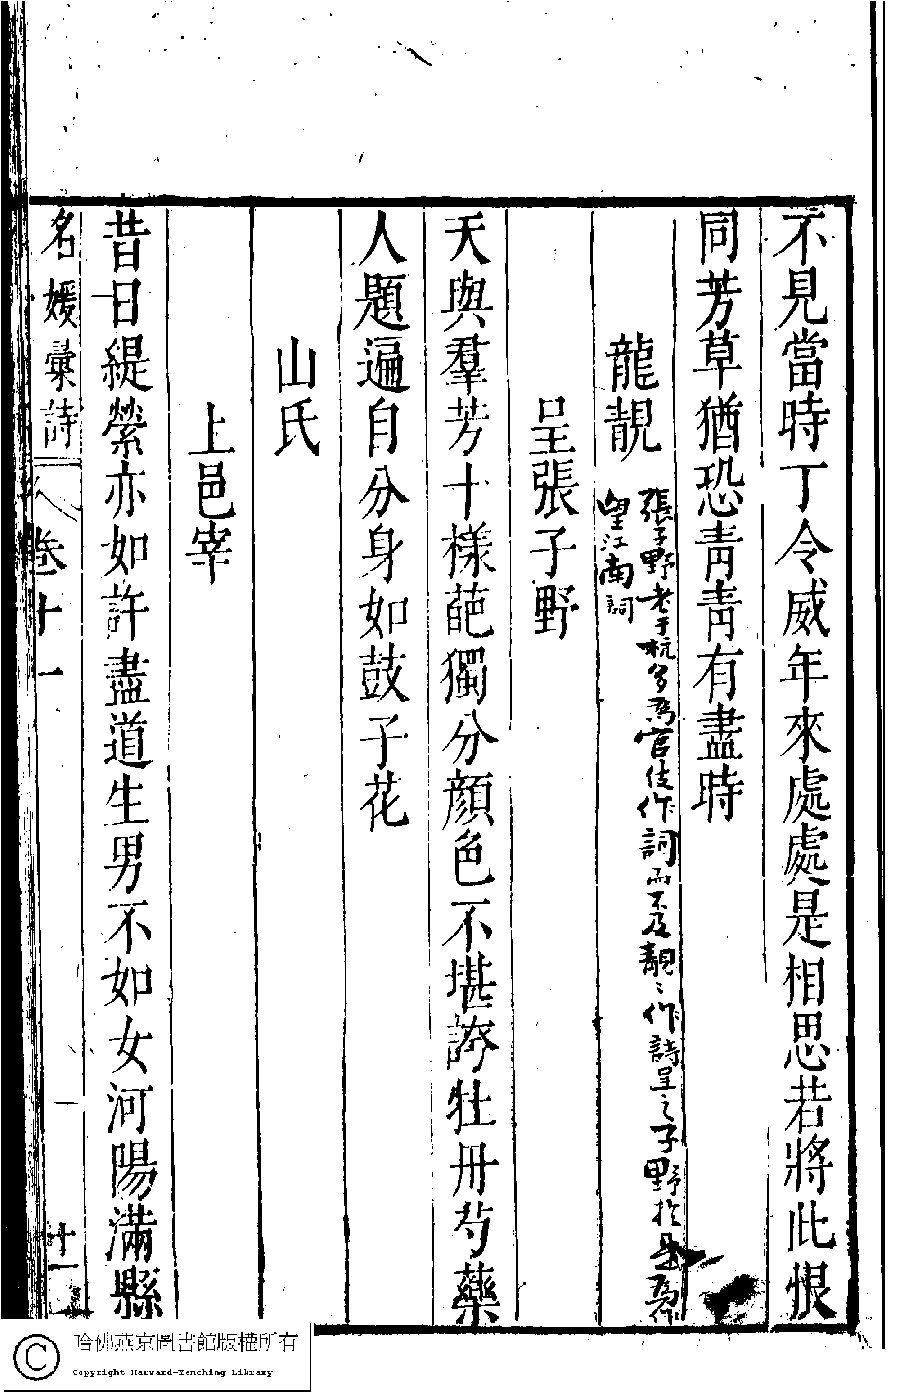 不見當時丁令威年來處處是相思若將此恨
同芳草猶恐青青有盡時
龍靚
張子野老于杭多為官伎作詞而不及靚〻作詩呈之子野於是為作
望江南詞
呈張子野
天與羣芳十樣葩獨分顔色不堪誇牡丹芍藥
人題遍自分身如鼓子花
山氏
上邑宰
昔日緹縈亦如許盡道生男不如女河陽滿縣
名媛彙詩
卷十一
十一
哈佛燕京圖書館版權所有
Copyright Harvard-Yenching Library